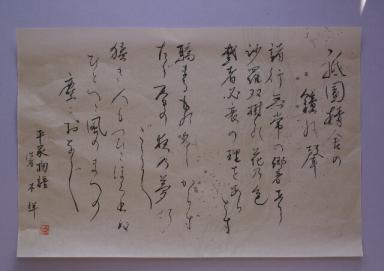 祇園精舎の
鐘の聲
諸行無常の響あり
沙羅双樹の花の色
盛者必衰の理をあらはす
驕れるもの久しからず
ただ春の夜の夢の
ごとし
猛き人もつひにほろびぬ
ひとへに風のまへの
塵におなじ
平家物語